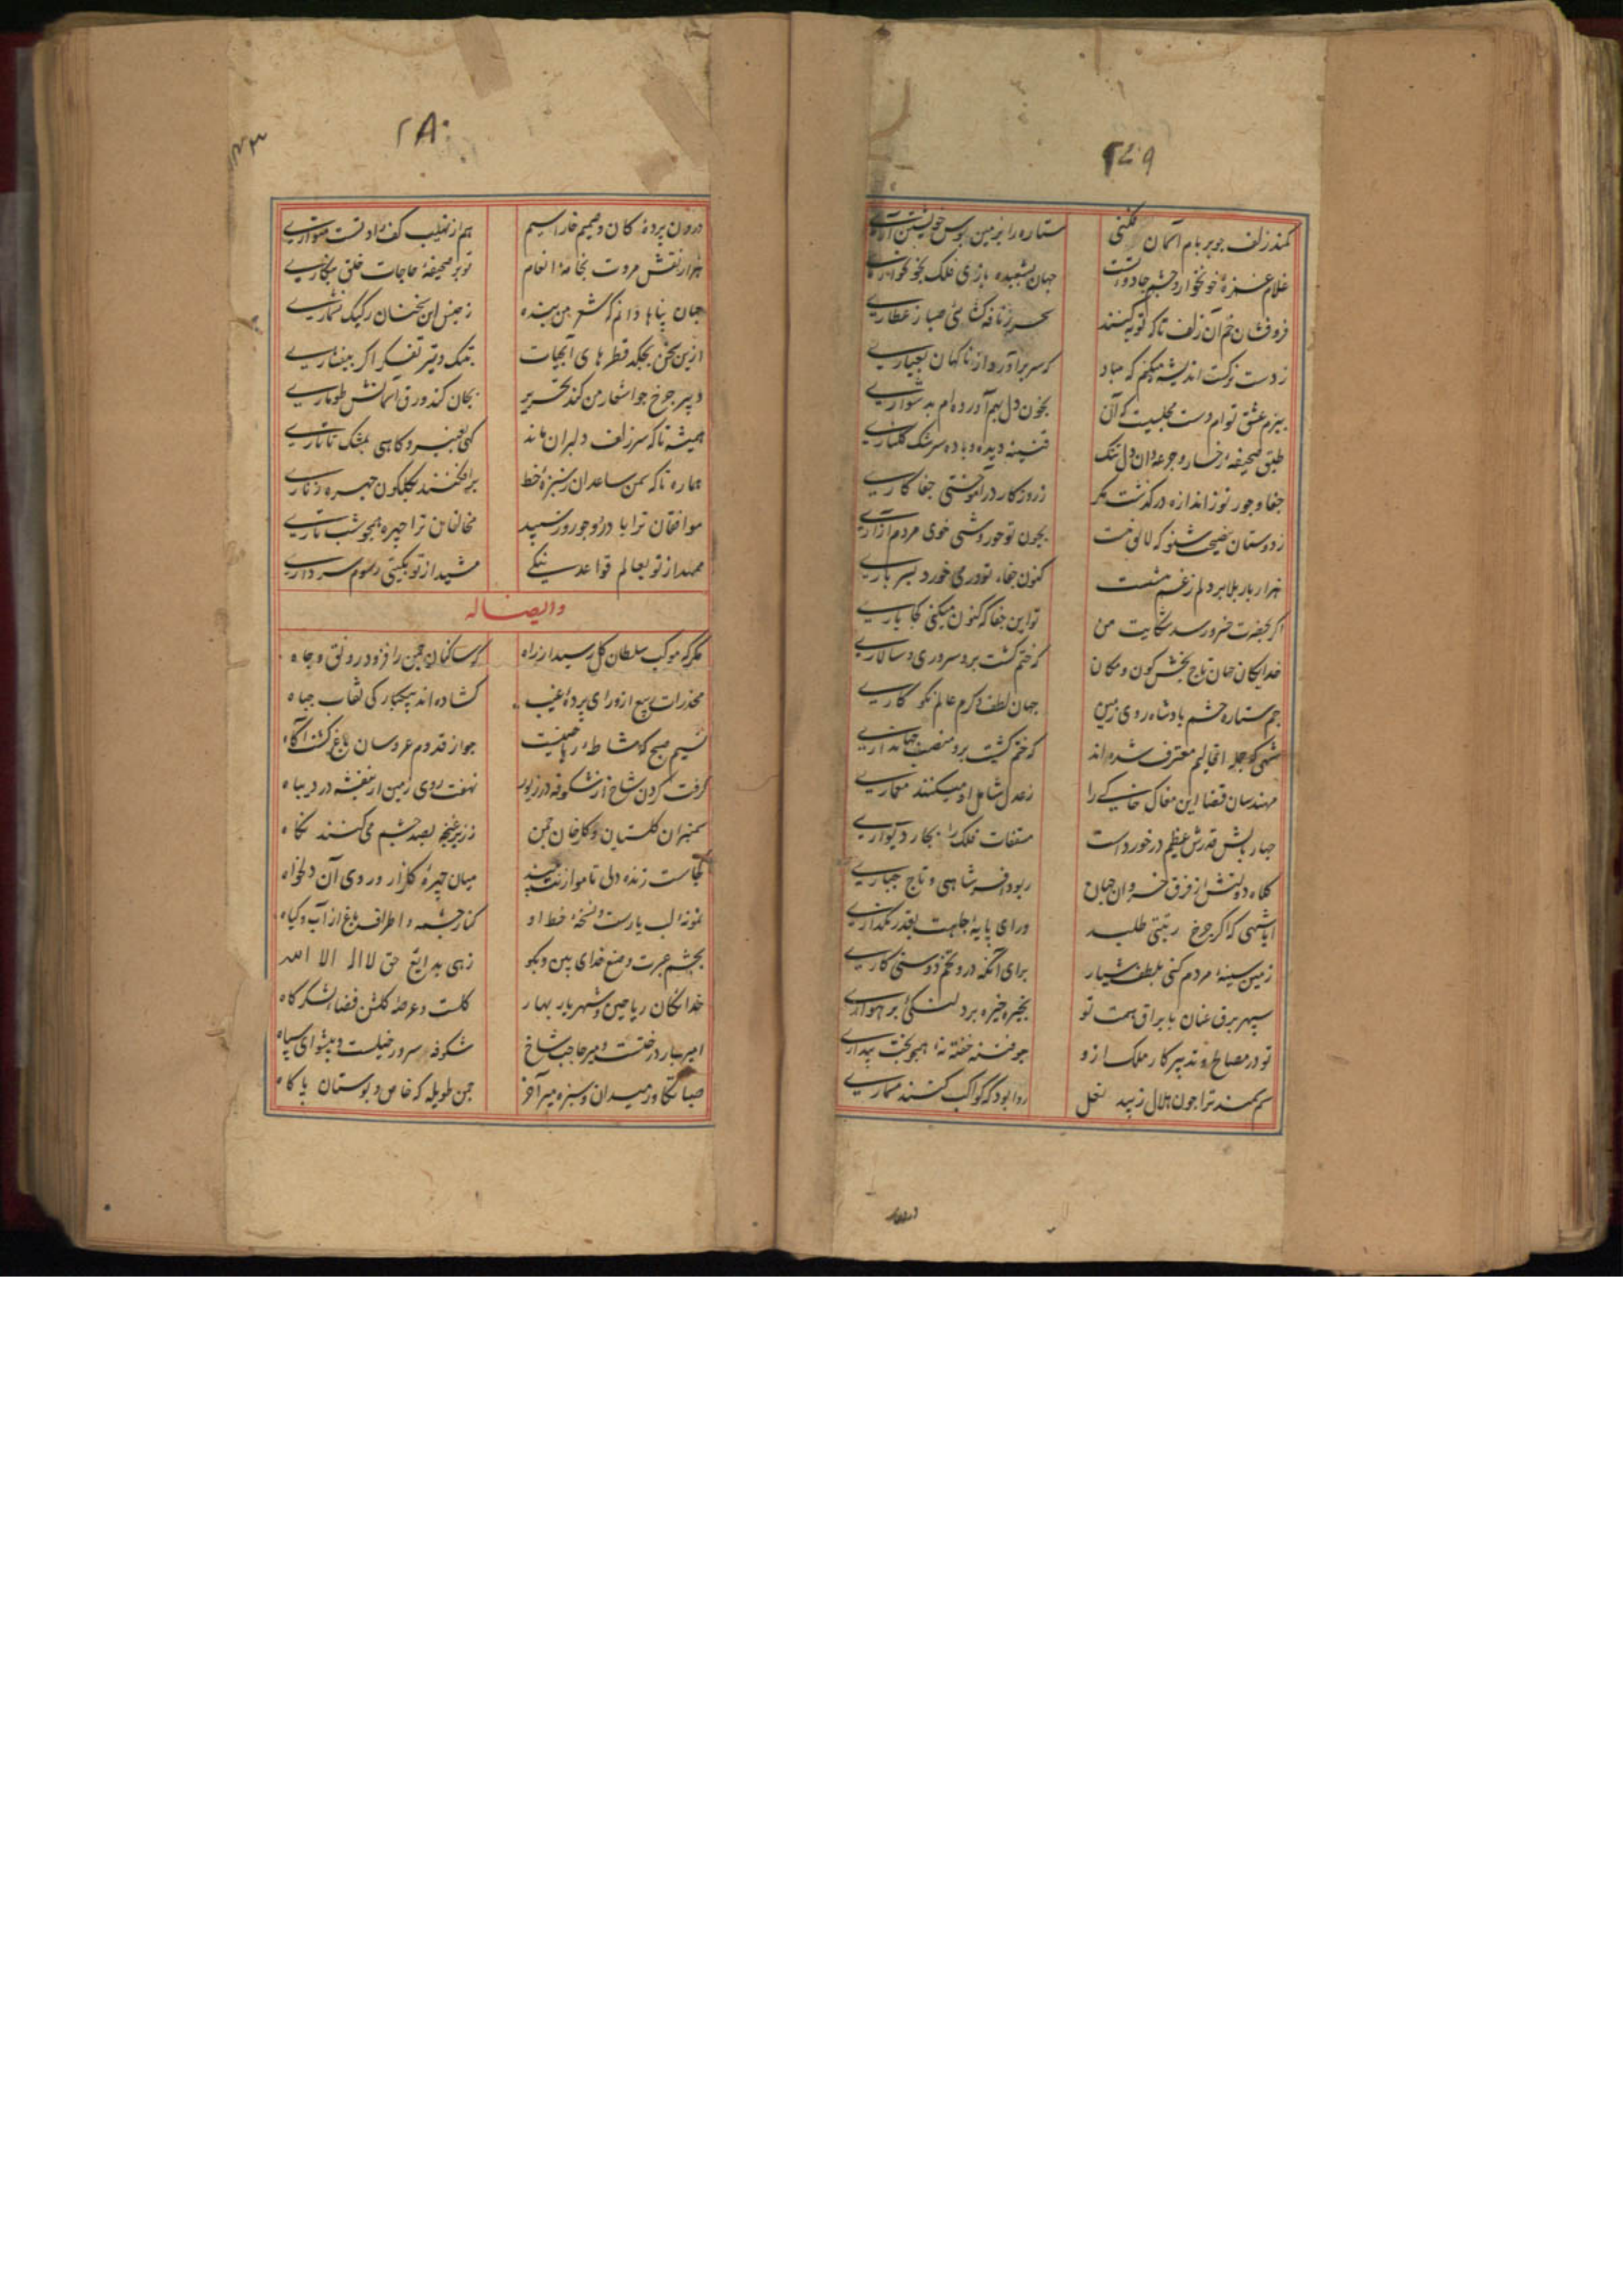 ۲۷۹
کمند زلف جو بر بام آسمان فکنی ستاره را بزمین بوس خویشتن آری
غلام غمزهٔ خونخوار و چشم جادوت جهان بشعبده بازی فلک
فروفشان خم آن زلف تا که توبه کنند سحر ز نافه کشائی صبا ز عطاری
ز دست ترکت اندیشه میکنم که مباد که سر برآورد از ناکهان بعیاری
ببزم عشق توام دست مجلسیست که آن بخون دل بهم آورده ام بدشواری
طبق صحیفهٔ رخسار و جرعه دان دل تنک قنینه دیده و باده سرشک کلناری
جفا و جور تو ز اندازه درکذشت مکر ز روزکار درآموختی جفا کاری
ز دوستان نصیحت شنو که لائق نیست بجون تو حوروشی خوی مردم آزاری
هزار بار بلا بر دلم ز غم هست کنون جفاء تو در می خورد بسرباری
اکر بحضرت خسرو رسد شکایت من تو این جفا که کنون میکنی کجا یاری
خدایکان جهان تاج بخش کون و مکان که ختم کشت برو سروری و سالاری
جم ستاره حشم بادشاه روی زمین جهان لطف و کرم عالم نکو کاری
شهی که جمله اقالیم معترف شده اند که ختم کشت برو منصب جهانداری
مهندسان قضا این مغاک خاکی را ز عدل شامل او میکنند معماری
جهار بالش قدرش عظیم درخورداست مسقفات فلک را بکار دیواری
کلاه دولتش از فرق خسروان جهان ربود افسر شاهی و تاج جباری
ایا شهی که اکر جرخ رتبتی طلبد ورای پایهٔ جاهت بقدر نکذاری
زمین سینهٔ مردم کنی بلطف شیار برای آنکه درو تخم دوستی کاری
سپهر برق عنان با براق همت تو بخیره خیره برد لنکی بر هواری
تو در مصالح و تدبیر کار ملک ازو جو فتنه خفته نهٔ همجو بخت بیداری
سم سمند ترا جون هلال زیبد نعل روا بود که کواکب کنند مسماری
۲۸۰
درون پردهٔ کان و صمیم خارا سیم هم از نهیب کف راد تست متواری
هزار نقش مروت بخامهٔ انعام تو بر صحیفهٔ حاجات خلق بنکاری
جهان پناها دانم که شعر من بنده ز جنس این سخنان رکیک نشماری
ازین سخن بچکد قطرهای آبحیات بتنک دفتر تفکر اکر بیفشاری
دبیر جرخ جو اشعار من کند تحریر بجان کند ورق آسمانش طوماری
همیشه تا که سر زلف دلبران ماند کهی بعنبر و کاهی بمشک تاتاری
هماره تا که سمن ساعدان ز سبزهٔ خط برافکنند بکلکون چهره زناری
موافقان ترا باد رو جو روز سپید مخالفان ترا چهره همجو شب تاری
ممهد از تو بعالم قواعد نیکی مشید از تو بکیتی رسوم سرداری
و ایضا له
مکر که موکب سلطان کل رسید ز راه که ساکنان چمن را فزود رونق و جاه
مخدرات ربیع از ورای پردهٔ غیب کشاده اند بیکبارکی نقاب جباه
نسیم صبح که مشاطهٔ ریاحینیست جو از قدوم عروسان باغ کشت آکاه
کرفت کردن شاخ از شکوفه در زیور نهفت روی زمین از بنفشه در دیباه
سمنبران کلستان و کلرخان چمن ز زیر غنچه بصد چشم می کنند نکاه
کجاست زنده دلی تا موازنت بیند میان چهرهٔ کلزار و روی آن دلخواه
نمونهٔ لب یارست و نسخهٔ خط او کنار چشمه و اطراف باغ از آب و کیاه
بچشم عبرت و صنع خدای بین و بکو زهی بدائع حق لا اله الا الله
خدایکان ریاحین و شهریار بهار کلست و عرصهٔ کلشن فضاء لشکرکاه
امیر بار درختست و میر حاجب شاخ شکوفه سرور خیلست و پیشوای سپاه
صبا تکاور میدان و سبزه میر آخر چمن طویله که خاص و بوستان پاکاه